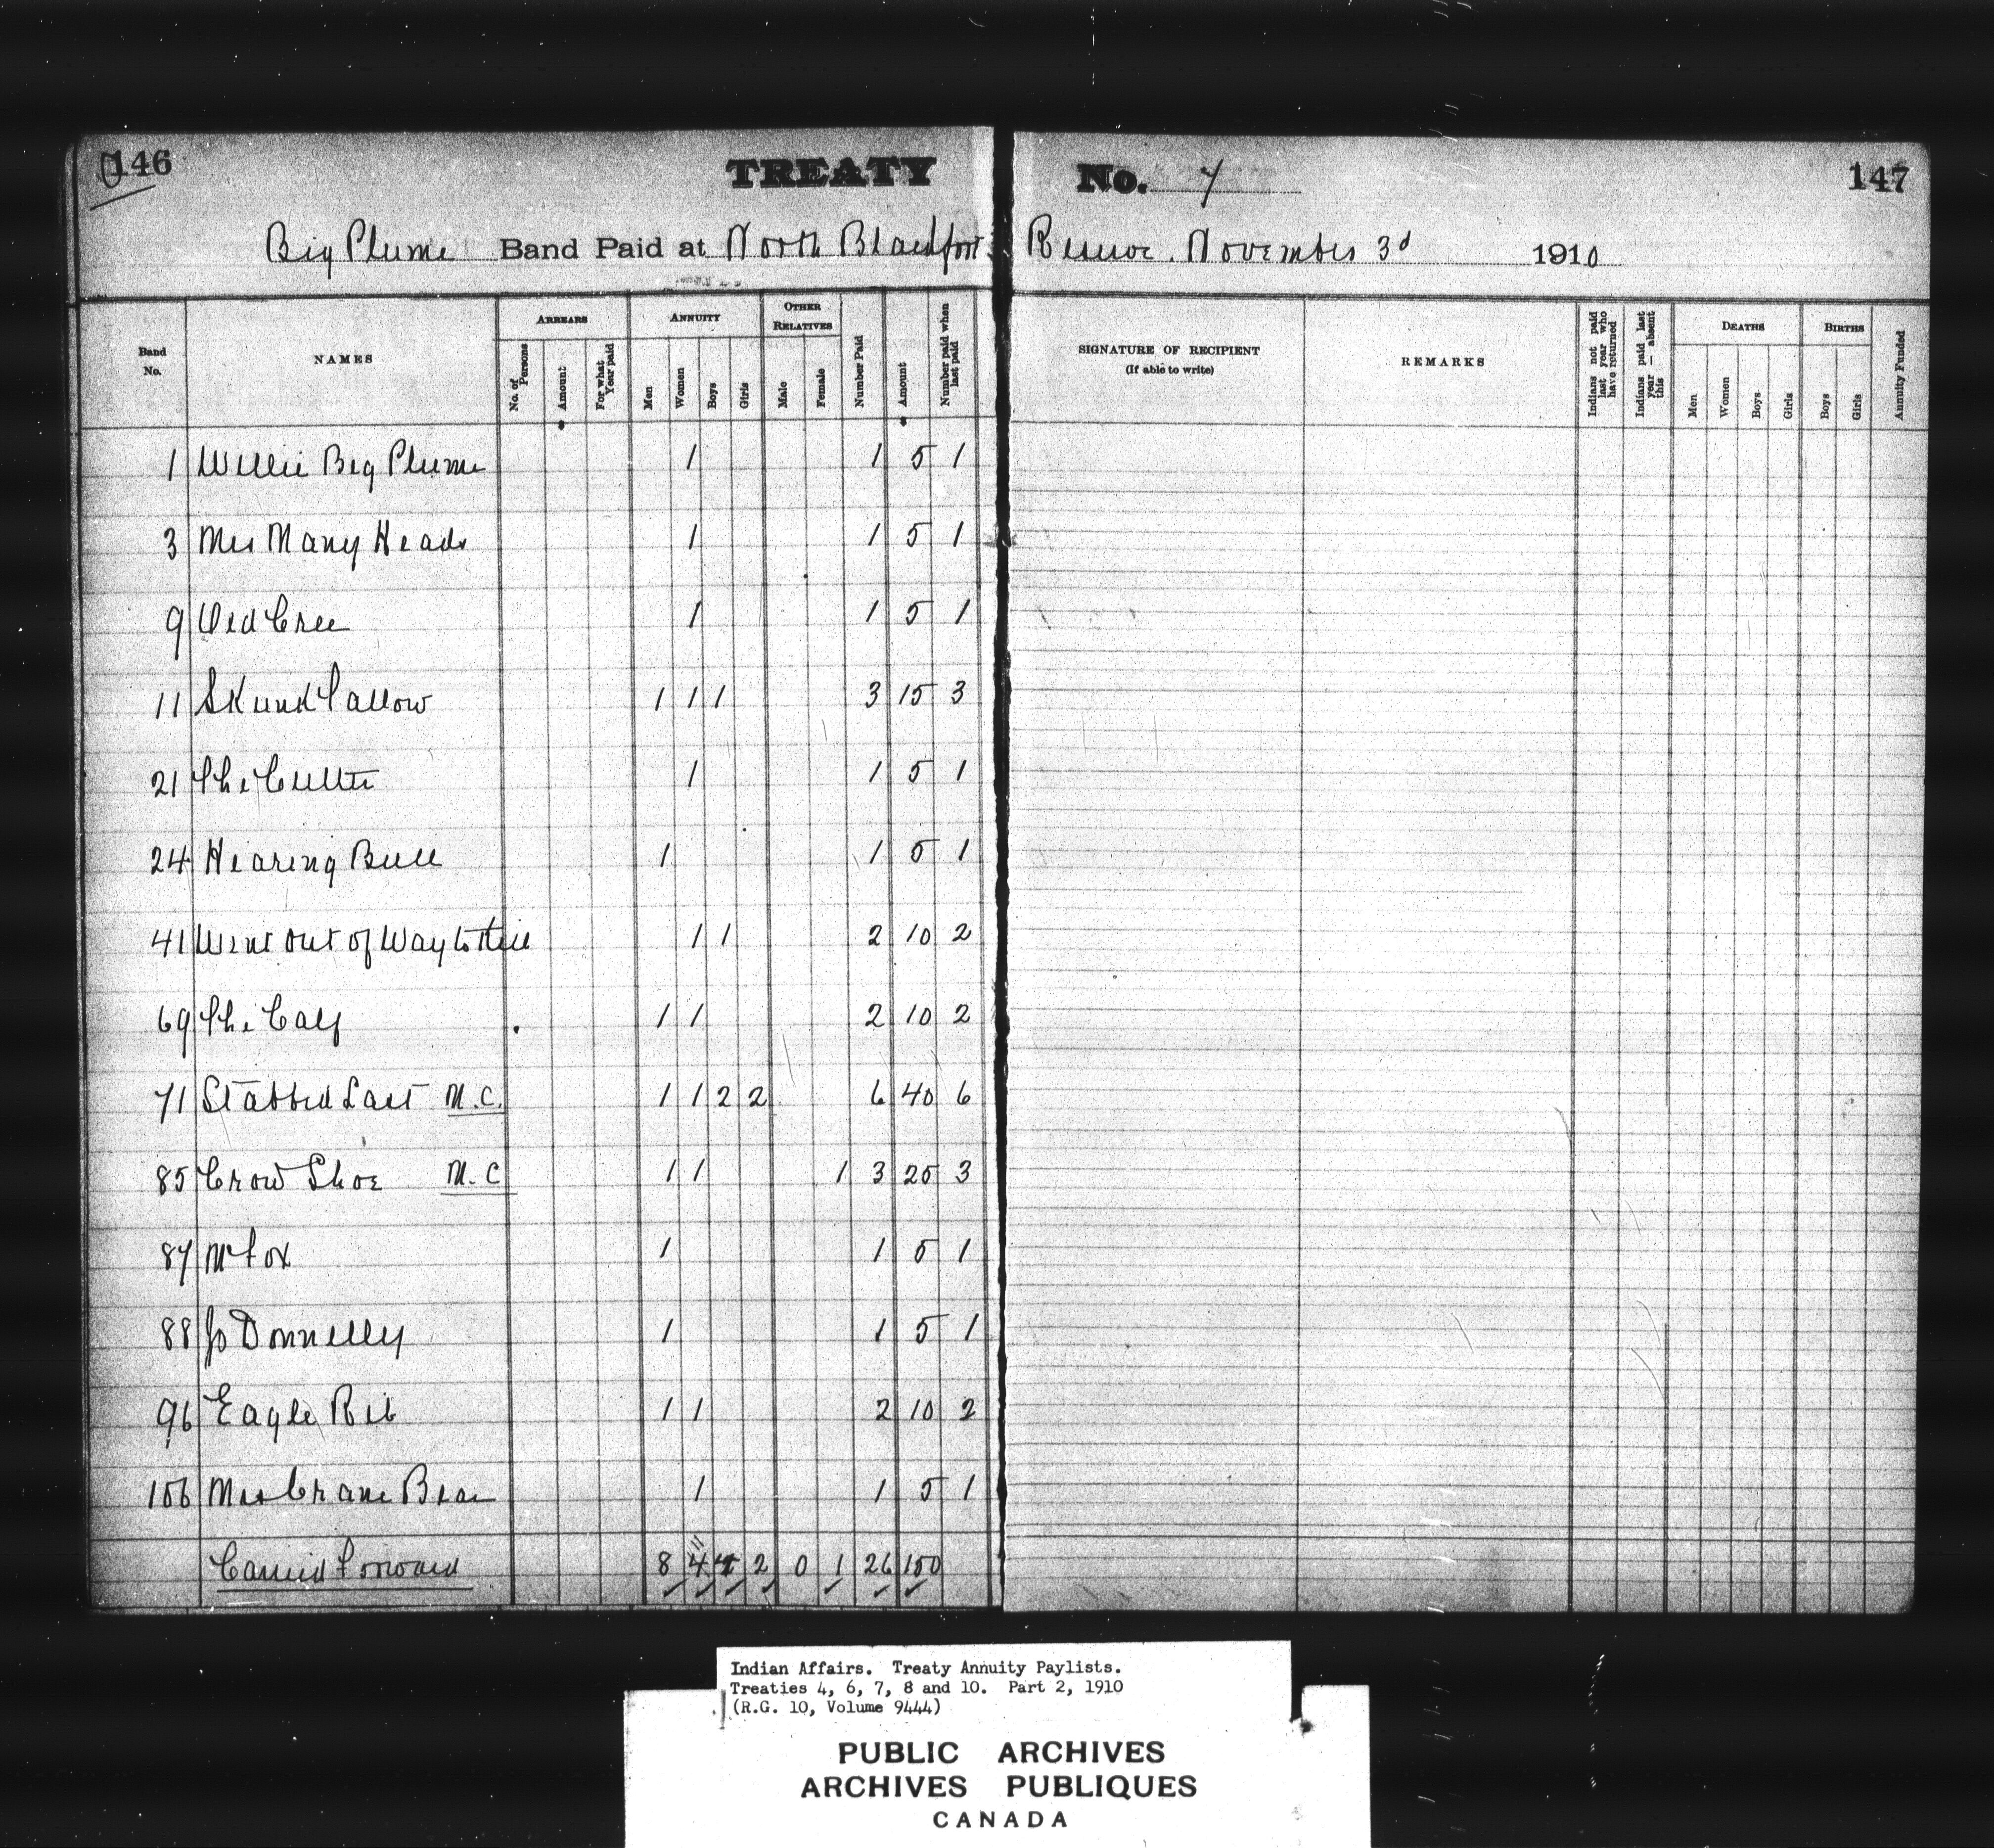 146
TREATY No. 7
147
Big Plume Band Paid at North Blackfoot Reserve. November 3d 1910
Band No.
NAMES
ARREARS
No. of Persons
Amount
For what Year paid
ANNUITY
Men
Women
Boys
Girls
OTHER RELATIVES
Male
Female
Number Paid
Amount
Number paid when last paid
SIGNATURE OF RECIPIENT
(If able to write)
REMARKS
Indians not paid last year who have returned
Indians paid last year — absent this
DEATHS
Men
Women
Boys
Girls
BIRTHS
Boys
Girls
Annuity Funded
1 Willie Big Plume 1 1 5 1
3 Mrs Many Heads 1 1 5 1
9 Old Cree 1 1 5 1
11 Skunk Tallow 1 1 1 3 15 3
21 The Cutter 1 1 5 1
24 Hearing Bull 1 1 5 1
41 Went out of Way to Kill 1 1 2 10 2
69 The Calf 1 1 2 10 2
71 Stabbed Last M.C. 1 1 2 2 6 40 6
85 Crow Shoe M.C 1 1 1 3 25 3
87 Mc Fox 1 1 5 1
88 Jo Donnelly 1 1 5 1
96 Eagle Rib 1 1 2 10 2
106 Mrs Crane Bear 1 1 5 1
Carried Forward 8 11 4 2 0 1 26 150
Indian Affairs. Treaty Annuity Paylists.
Treaties 4, 6, 7, 8 and 10. Part 2, 1910
(R.G. 10, Volume 9444)
PUBLIC ARCHIVES
ARCHIVES PUBLIQUES
CANADA